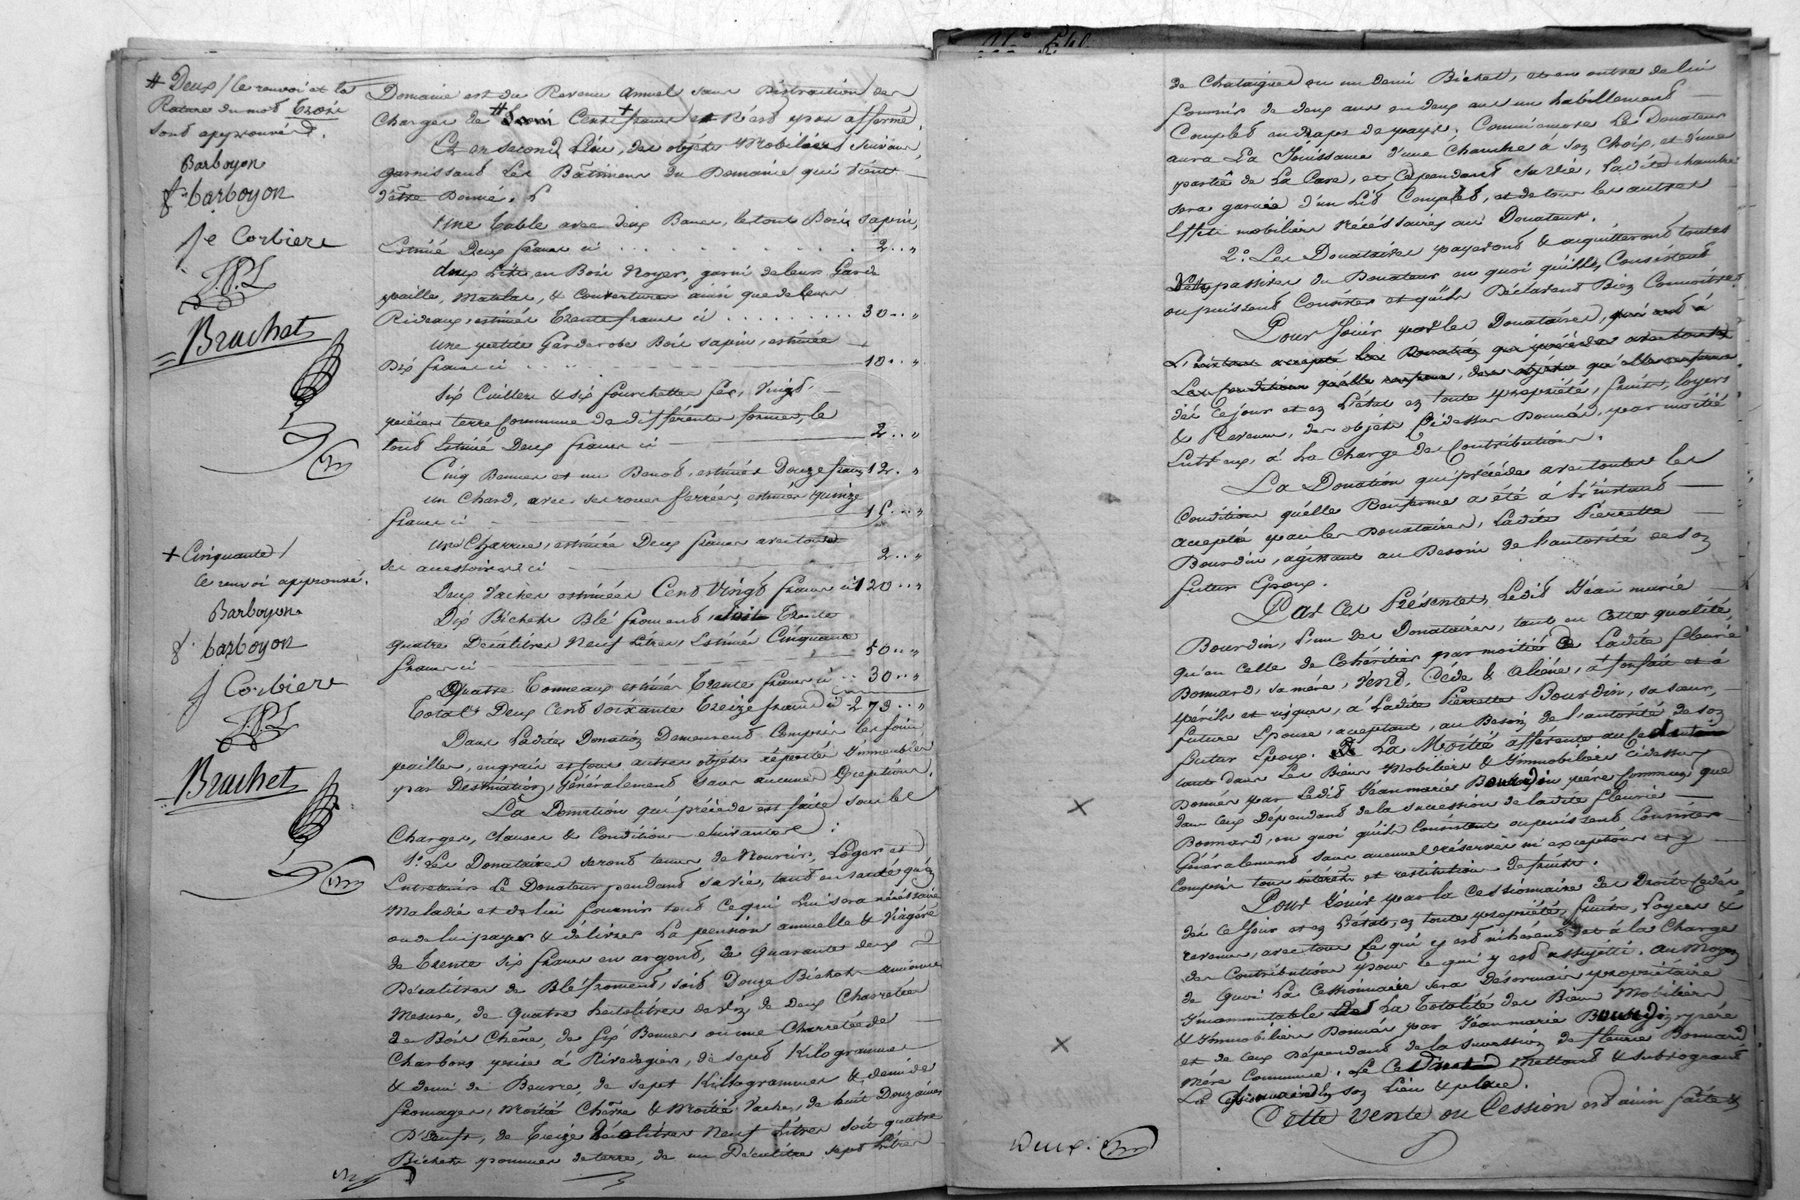 # Deux / Ce renvoi et la
Rature du mot trois
sont approuvés.
Barboyon
barboyon
je Corbiere
J.P.L
Bruchet
+ Cinquante /
Ce renvoi approuvé.
Barboyon
barboyon
j Corbiere
J.P.L
Bruchet
Domaine est du Revenu annuel sans Distraction des
Charges de # Cent + francs et n'est pas affermé.
Et en second Lieu, des objets Mobiliers suivans,
garnissant Les Bâtimens du Domaine qui vient
d'être Donné.
Une Table avec deux Bancs, le tout Bois sapin,
Estimé Deux francs ci . . . . 2 .. "
deux Lits, en Bois Noyer, garni de leurs Garde
paille, Matelas, & Couvertures ainsi que de leurs
Rideaux, estimés Trente francs ci . . . . 30 .. "
Une petite Garderobe Bois sapin, estimée
Dix francs ci . . . . 10 .. "
Six Cuillers & six fourchettes fer, Vingt
pièces terre Commune de différentes formes, le
tout Estimé Deux francs ci 2 .. "
Cinq Bennes et un Benot, estimés Douze francs 12 . "
un Chard, avec ses roues ferrées, estimés quinze
francs ci 15 .. "
Une Charrue, estimée Deux francs avec tous
ses accessoires ci 2 .. "
Deux Vaches estimées Cent Vingt francs ci 120 .. "
Dix Bichets Blé froment, soit Trente
quatre Decalitres Neuf Litres, Estimé Cinquante
francs ci 50 .. "
Quatre Tonneaux estimés Trente francs ci .. 30 .. "
Total Deux Cent soixante Treize francs ci 273 .. "
Dans Ladite Donation Demeurent Compris les foins
pailles, engrais et tous autres objets réputés Immeubles
par Destination, Généralement sans aucune Exception.
La Donation qui précède est faite sous les
Charges, clauses & Conditions suivantes :
1.° Les Donataires seront tenus de Nourrir, Loger et
Entretenir Le Donateur pendant sa vie, tant en santé qu'en
Maladie et de lui fournir tout ce qui Lui sera nécéssaire
ou de lui payer & délivrer La pension annuelle & Viagère
de Trente six francs en argent, de quarante deux
Décalitres de Blé froment, soit Douze Bichets ancienne
Mesure, de quatre hectolitres de Vin, de deux Charretées
de Bois Chêne, de six Bennes ou une Charretée de
Charbons prise à Rivedegier, de sept Kilogrammes
& demi de Beurre, de sept Killogrammes & demi de
fromages, Moitié Chèvre & Moitié Vache, de huit Douzaines
D'œufs, de Treize Décalitres Neuf Litres soit quatre
Bichets pommes de terre, de un Décalitre sept Litres
de Chataignes ou un demi Bichet, et en outre de lui
fournir de deux ans en deux ans un habillement
Complet en draps de pays. Comme encore Le Donateur
aura La Jouissance d'une Chambre à son Choix, et d'une
partie de La Cave, et Cependant sa vie, Ladite chambre
sera garnie d'un Lit Complet, et de tous les autres
Effets mobiliers Nécéssaires au Donateur.
2.° Les Donataires payeront & acquitteront toutes
Dettes passives du Donateur en quoi qu'elles Consistent
ou puissent Consister et qu'ils Déclarent Bien Connoitre.
Pour Jouir par les Donataires,
dès ce jour et en L'état en toute propriété, fruits, loyers
& Revenus, des objets Cidessus Donnés, par moitié
Entr'eux, à La Charge des Contributions.
La Donation qui précède avec toutes les
Conditions qu'elle Renferme a été à L'instant
acceptée par les Donataires, Ladite Pierrette
Bourdin, agissant au Besoin de l'autorité de son
futur Epoux.
Par Ces Présentes, Ledit Jean marie
Bourdin, L'un des Donataires, tant en Cette qualité,
qu'en celle de Cohéritier par moitié de Ladite fleurie
Bonnard, sa mère, Vend, Cède & aliène, à forfait et à
périls et risques, à Ladite Pierrette Bourdin, sa sœur,
future Epouse, acceptant, au Besoin de l'autorité de son
futur Epoux. La Moitié afférente au Cédant
tant dans Les Biens Mobiliers & Immobiliers Cidessus
Donnés par Ledit Jean marie Bourdin père Commun, que
dans Ceux Dépendant de la succession de ladite fleurie
Bonnard, en quoi qu'ils Consistent ou puissent Consister
Généralement sans aucunes réserves ni exceptions et y
Compris tous intérêts et restitution de fruits.
Pour Jouir par la Cessionnaire des Droits Cédés,
dès ce Jour et en L'état, en toute propriété, fruits, Loyers &
revenus, avec tout ce qui y est inhérent et à la Charge
des Contributions pour ce qui y est assujéti. Au Moyen
de quoi La Cessionnaire sera Désormais propriétaire
Incommutable de La Totalité des Biens Mobiliers
& Immobiliers Donnés par Jean marie Bourdin père
et de ceux Dépendant de la succession de fleurie Bonnard
Mère Commune. Le Cédant Mettant & subrogeant
La Cessionnaire en son Lieu & place.
Cette Vente ou Cession est ainsi faite &
Deux.